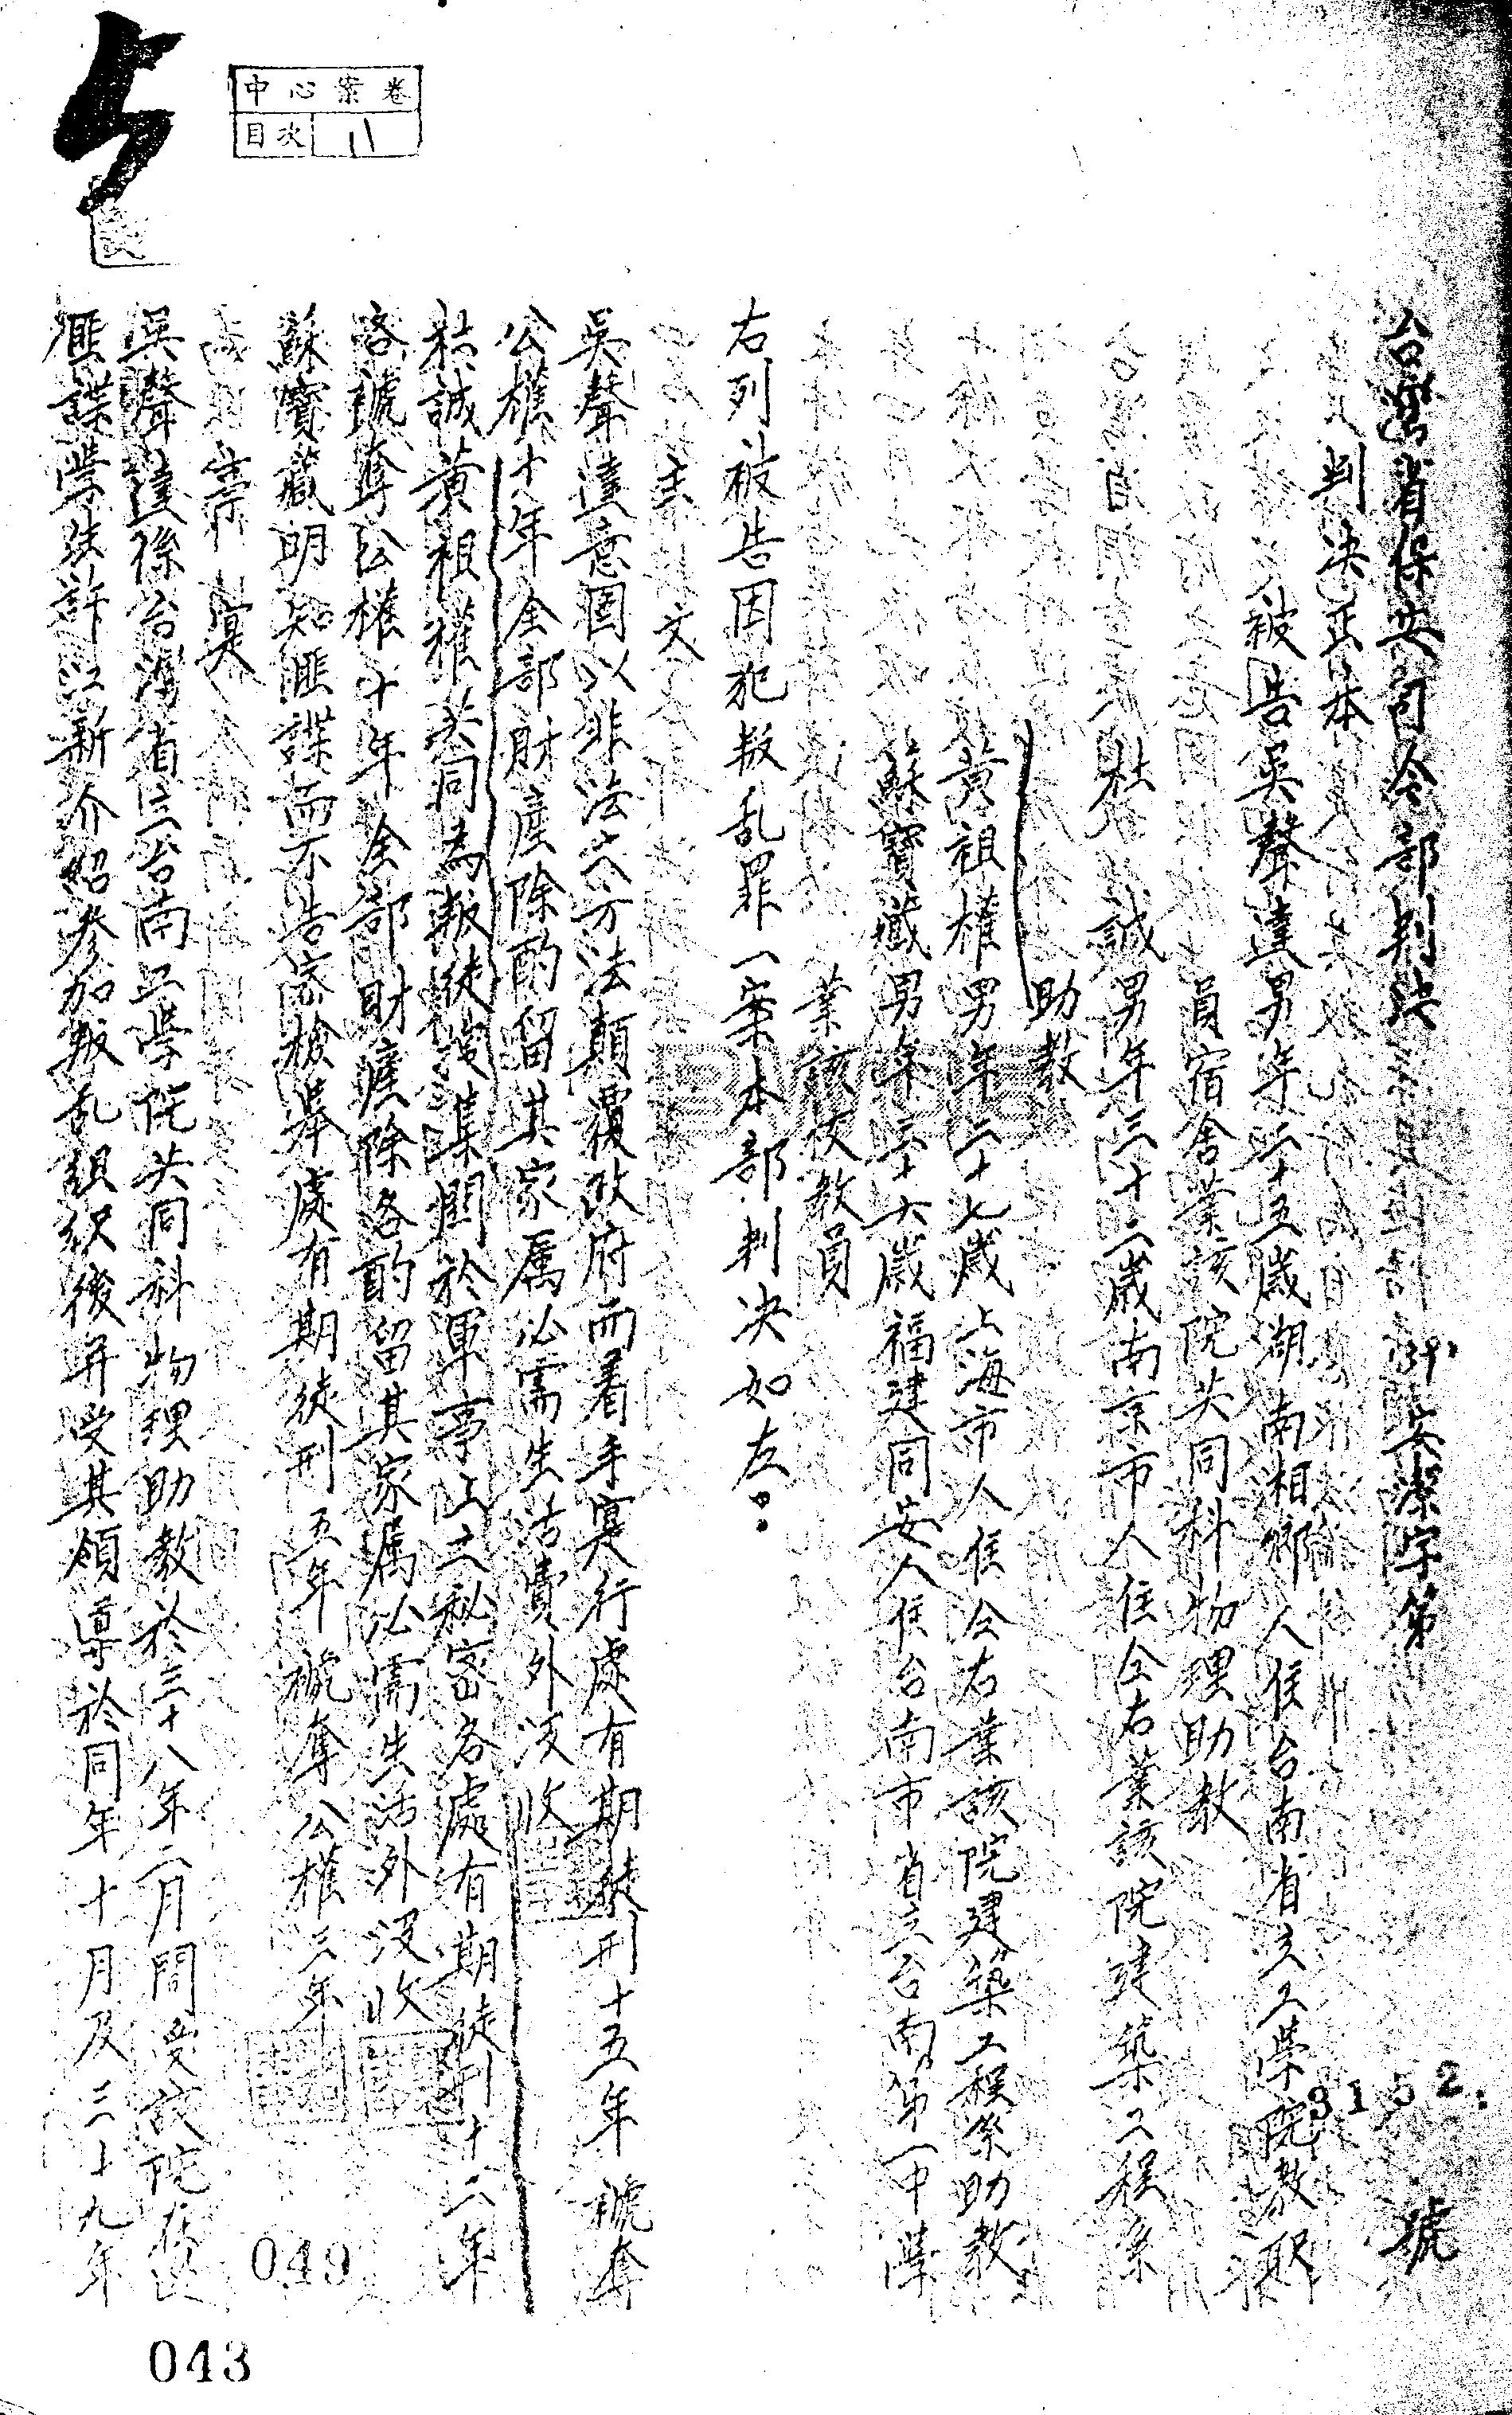 中心案卷
目次 八
台灣省保安司令部判決 (39) 安潔字第3152號
判決正本
被告吳聲達男年二十五歲湖南湘鄉人住台南省立工學院教職
員宿舍業該院共同科物理助教
杜 誠男年三十二歲南京市人住仝右業該院建築工程系
助教
黃祖權男年二十七歲上海市人住仝右業該院建築工程系助教
蘇寶藏男年二十六歲福建同安人住台南市省立台南第一中學
業該校教員
右列被告因犯叛乱罪一案本部判决如左。
主文
吳聲達意圖以非法之方法顛覆政府而着手寔行處有期徒刑十五年褫奪
公權十年全部財產除酌留其家属必需生活費外沒收
杜誠黃祖權共同為叛徒搜集關於軍事上之秘密各處有期徒刑十二年
各褫奪公權十年全部財產除各酌留其家属必需生活外沒收
蘇寶藏明知匪諜而不告密檢舉處有期徒刑五年褫奪公權三年
事寔
吳聲達係台灣省立台南工學院共同科物理助教於三十八年二月間受該院在逃
匪諜學生許江新介紹參加叛乱組织後并受其領導於同年十月及三十九年
049
043